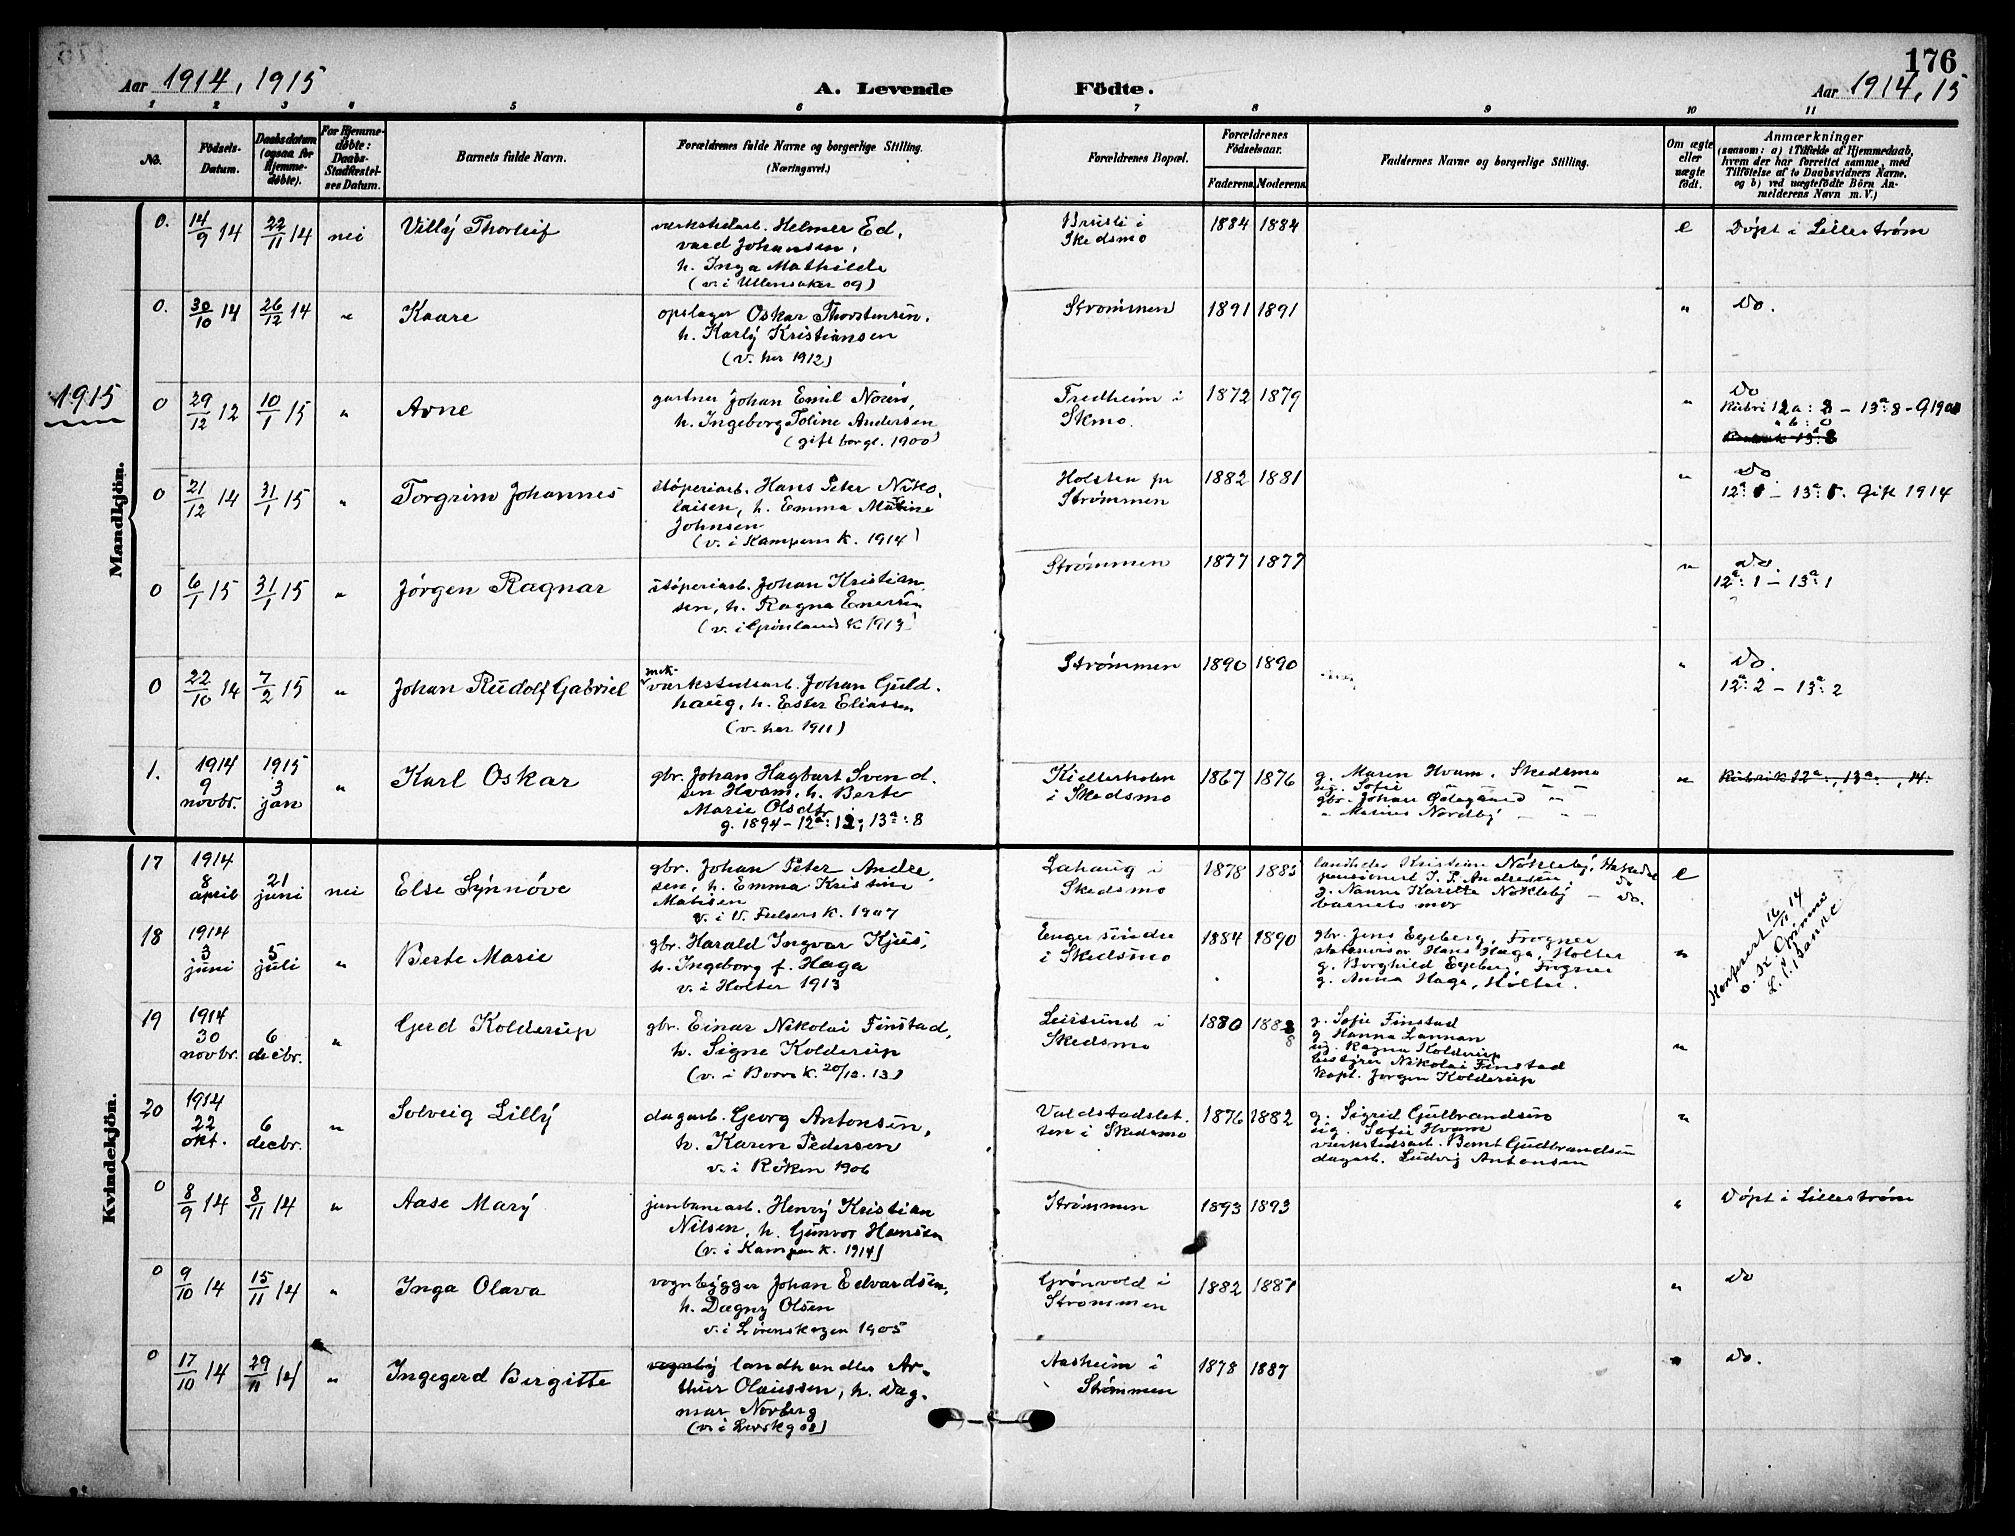 176
Aar 1914, 1915
A. Levende Födte.
Aar 1914, 15
1 2 3 4 5 6 7 8 9 10 11
No.
Födsels-Datum.
Daabsdatum (ogsaa for Hjemme-døbte).
For Hjemme-døbte: Daabs-Stadfæstel-ses Datum.
Barnets fulde Navn.
Forældrenes fulde Navne og borgerlige Stilling. (Næringsvei.)
Forældrenes Bopæl.
Forældrenes Födselsaar.
Faderens Moderens
Faddernes Navne og borgerlige Stilling.
Om ægte eller uægte født.
Anmærkninger
(saasom: a) i Tilfælde af Hjemmedaab, hvem der har forrettet samme, med Tilföielse af to Daabsvidners Navne. og b) ved uægtefödte Börn An-melderens Navn m. V.)
Mandkjön.
0. 14/9 14 22/11 14 nei Villy Thorleif
værkstedarb. Helmer Ed,
vard Johansen,
h. Inga Mathilde
(v. i Ullensaker 09)
Brusli i
Skedsmo
1884 1884 e Døpt i Lillestrøm
0. 30/10 14 26/12 14 " Kaare
opslager Oskar Thorstensen,
h. Karly Kristiansen
(v. her 1912)
Strømmen 1891 1891 " Do.
1915
0 29/12 12 10/1 15 " Arne
gartner Johan Emil Norén,
h. Ingeborg Toline Andersen
(gift borgl. 1900)
Fredheim i
Skmo.
1872 1879 " Do
Rubri 12a: 8 - 13a: 8 - G 1900
" b: 0
0 21/12 14 31/1 15 " Torgrim Johannes
støperiarb. Hans Peter Niko,
laisen, h. Emma Matine
Johnsen
(v. i Kampens k. 1914)
Holsten pr
Strømmen
1882 1881 " Do
12a: 0 - 13a: 0. Gift 1914
0 6/1 15 31/1 15 " Jørgen Ragnar
støperiarb. Johan Kristian
sen, h. Ragna Enersen
(v. i Grønland k 1913)
Strømmen 1877 1877 " Do.
12a: 1 - 13a: 1
0 22/10 14 7/2 15 " Johan Rudolf Gabriel
mek.
værkstedsarb. Johan Guld.
haug, h. Ester Eliassen
(v. her 1911)
Strømmen 1890 1890 " Do.
12a: 2 - 13a: 2
1. 1914 9 novbr. 1915 3 jan " Karl Oskar
gbr. Johan Hagbart Svend.
sen Hvam, h. Berte
Marie Olsdtr.
g. 1894 - 12a: 12; 13a: 8
Kjellerholen
i Skedsmo
1867 1876
g. Maren Hvam, Skedsmo
ug. Sofie " "
gbr. Johan Ødegaard " "
" Marius Nordby " "
"
Rubrik 12a:, 13a:, 14.
Kvindekjön.
17 1914 8 april 21 juni nei Else Synnöve
gbr. Johan Peter Andre,
sen, h. Emma Kristine
Matisen
v. i V. Fulsens k. 1907
Lahaug i
Skedsmo
1878 1885
landh. Kristian Nökleby, Hakadal
pensionert J. P. Andresen, Do
g. Nanna Karette Nökleby - Do.
barnets mor
e
18 1914 3 juni 5 juli " Berte Marie
gbr. Harald Ingvar Kjus,
h. Ingeborg f. Haga
v. i Holter 1913
Engersundre
i Skedsmo
1884 1890
gbr. Jens Egeberg, Frogner
Hans Haga, Holter
g. Borghild Egeberg, Frogner
g. Anna Haga, Holter.
"
19 1914 30 novbr. 6 decbr. " Gerd Kolderup
gbr. Einar Nikolai Finstad,
h. Signe Kolderup
(v. i Borre k. 20/12. 13)
Leirsund i
Skedsmo
1880 1888
g. Sofie Finstad
g Hanna Lannan
ug. Ragna Kolderup
bestyrer Nikolai Finstad
kapt. Jørgen Kolderup
"
20 1914 22 okt. 6 decbr. " Solveig Lilly
dagarb. Georg Antonsen,
h. Karen Pedersen
v. i Röken 1906
Valdstadslet.
ten i Skedsmo
1876 1882
g. Sigrid Gulbrandsen
ug. Sofie Hvam
værkstedsarb. Bernt Gudbrandsen
dagarb. Ludvig Antonsen
"
0 8/9 14 8/11 14 " Aase Mary
jernbanearb. Henry Kristian
Nilsen, h. Gunvor Hansen
(v. i Kampen k. 1914)
Strømmen 1893 1893 " Døpt i Lillestrøm
0 9/10 14 15/11 14 " Inga Olava
vognbygger Johan Edvardsen,
h. Dagny Olsen
v. i Lørenskogen 1905
Grönvold i
Strommen
1882 1887 " Do
0 17/10 14 29/11 14 " Ingegerd Birgitte
vognby landhandler Ar-
thur Olaussen, h. Dag.
mar Norberg
(v. i Lørskg 08)
Aasheim i
Strømmen
1878 1887 " Do.